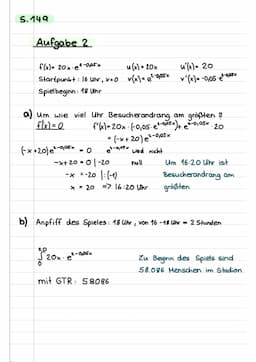 S. 149
Aufgabe 2
f(x) = 20x · e^(4-0,05x) u(x) = 20x u'(x) = 20
Startpunkt: 16 Uhr, x=0 v(x) = e^(4-0,05x) v'(x) = -0,05·e^(4-0,05x)
Spielbeginn: 18 Uhr
a) Um wie viel Uhr Besucherandrang am größten?
f'(x) = 0 f'(x) = 20x · (-0,05·e^(4-0,05x)) + e^(4-0,05x) · 20
= (-x+20) e^(4-0,05x)
(-x+20) e^(4-0,05x) = 0 wird nicht
-x+20 = 0 |-20 null Um 16:20 Uhr ist
-x = -20 |:(-1) Besucherandrang am
x = 20 => 16:20 Uhr größten
b) Anpfiff des Spieles: 18 Uhr, von 16-18 Uhr = 2 Stunden
∫ 20x · e^(4-0,05x) Zu Beginn des Spiels sind
58.086 Menschen im Stadion
mit GTR: 58086